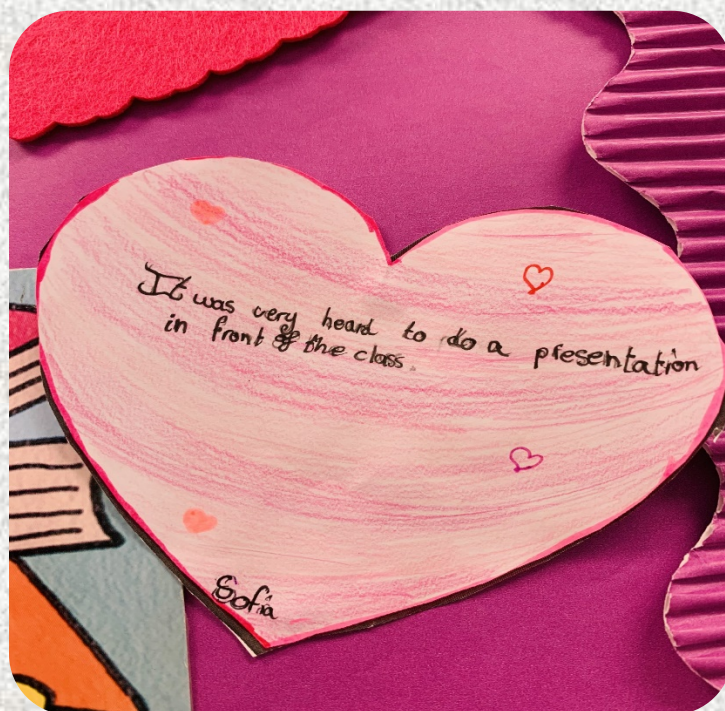 It was very heard to do a presentation
in front of the class.
Sofia